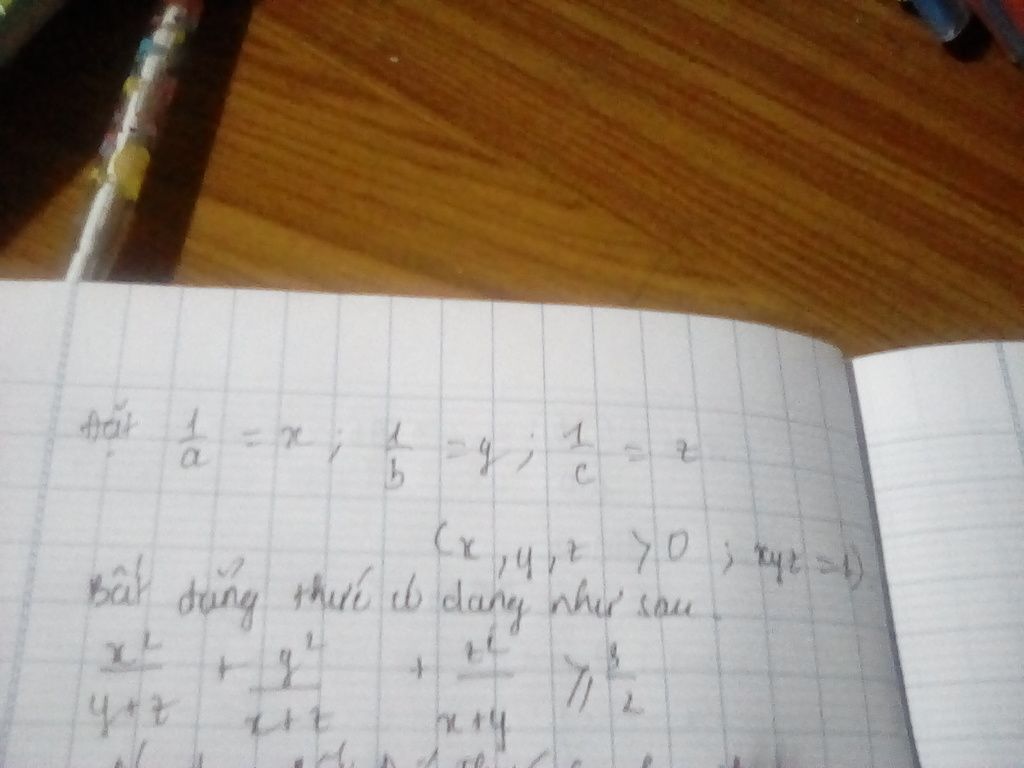 Đặt 1/a = x ; 1/b = y ; 1/c = z
(x, y, z > 0 ; xyz = 1)
Bất đẳng thức có dạng như sau
x²/(y+z) + y²/(x+z) + z²/(x+y) ≥ 3/2